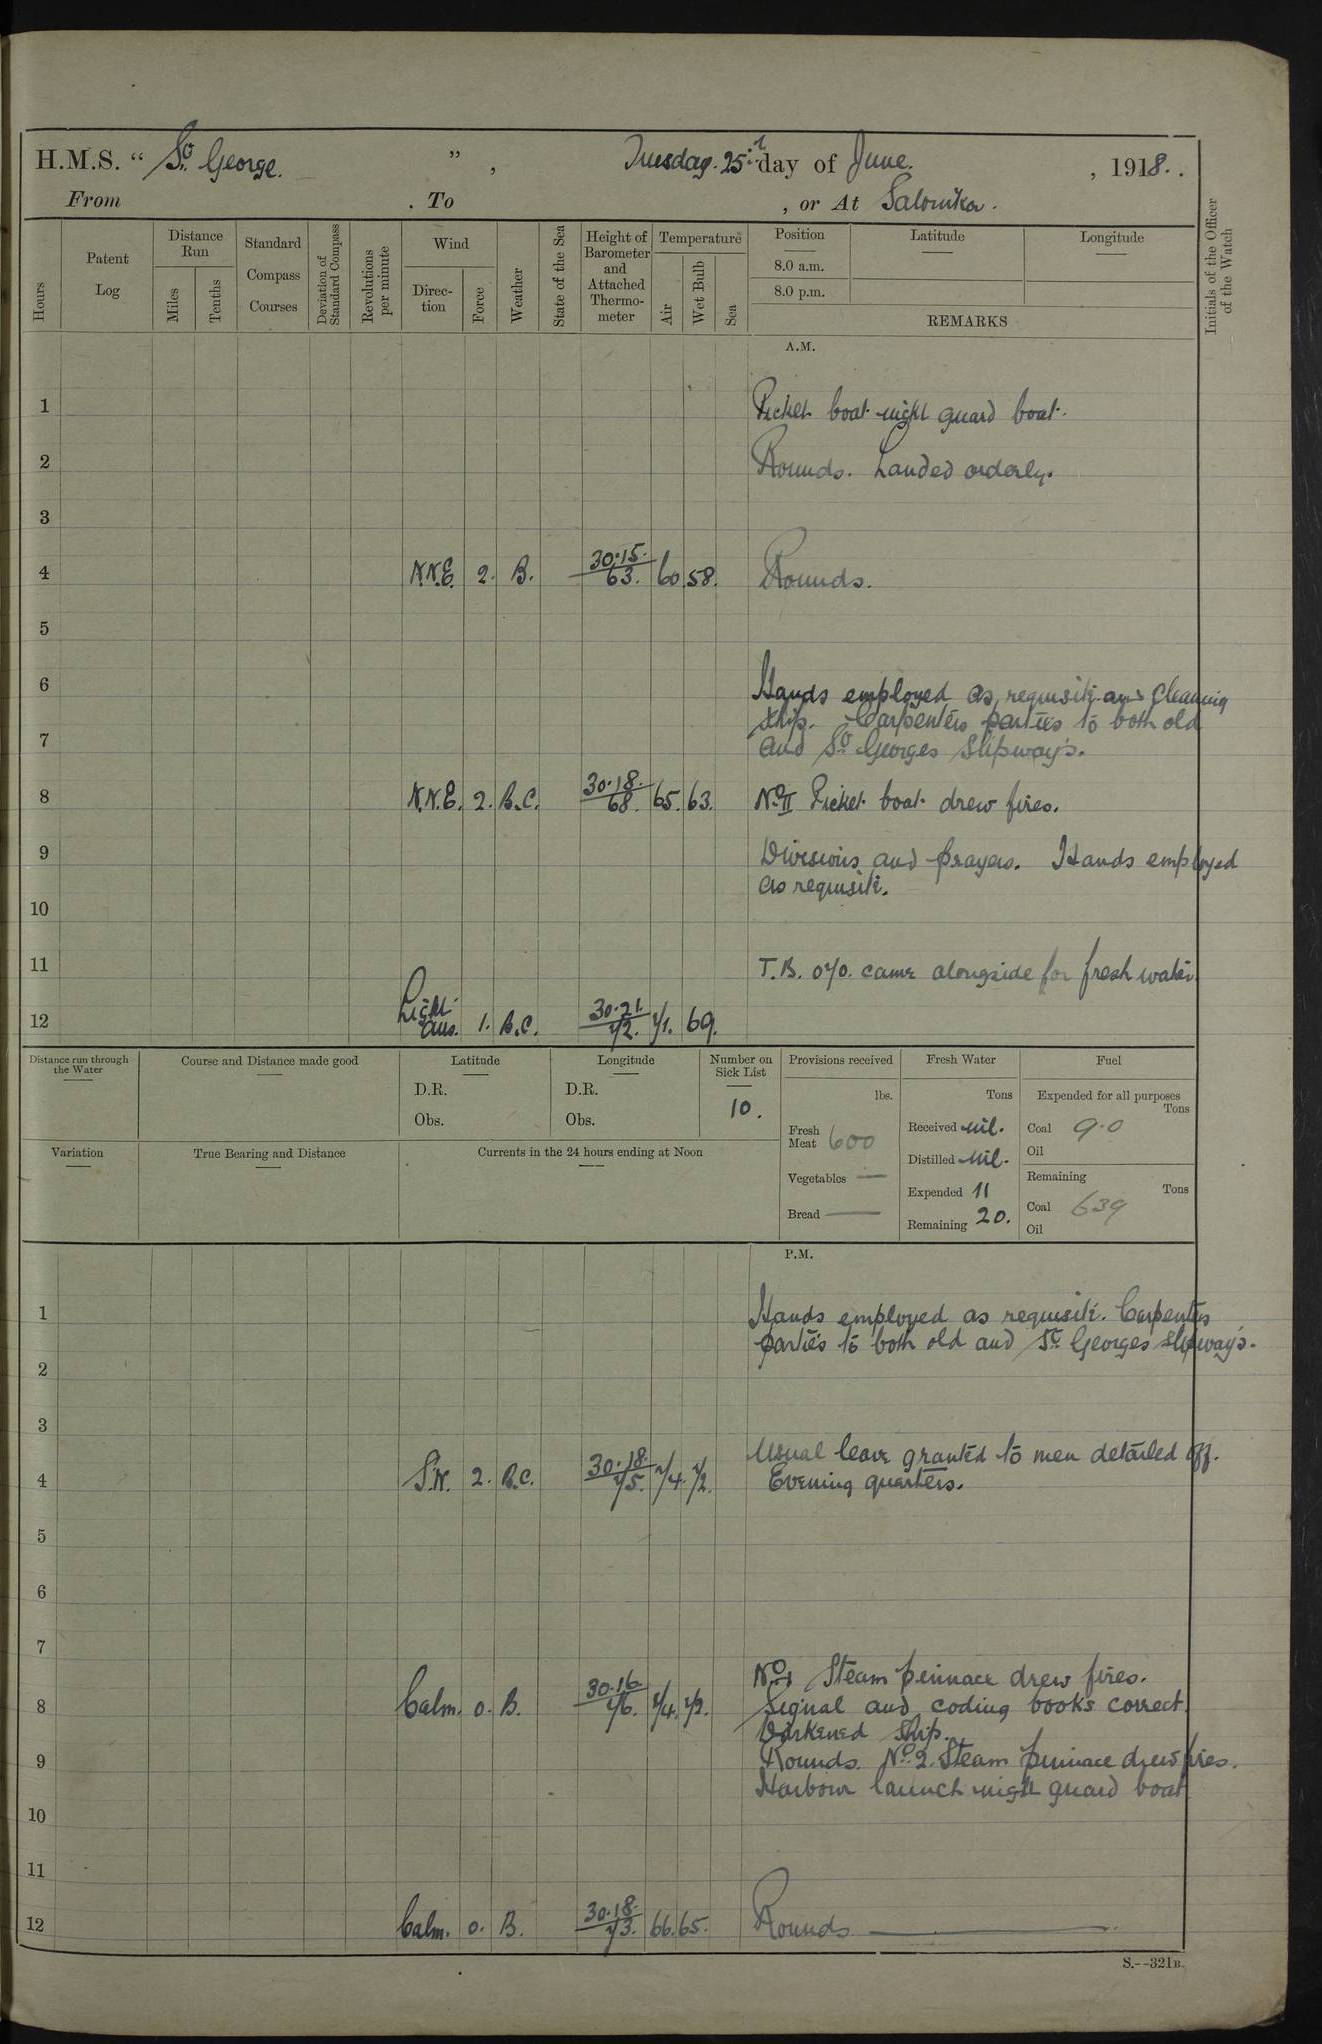 H.M.S. “ St. George. ” , Tuesday. 25th day of June. , 1918. .
From . To , or At Salonika.
Hours
Patent Log
Distance Run
Miles
Tenths
Standard Compass Courses
Deviation of Standard Compass
Revolutions per minute
Wind
Direc-tion
Force
Weather
State of the Sea
Height of Barometer and Attached Thermo-meter
Temperature
Air
Wet Bulb
Sea
Position
Latitude
Longitude
8.0 a.m.
8.0 p.m.
REMARKS
Initials of the Officer of the Watch
A.M.
1 Picket boat night guard boat.
2 Rounds. Landed orderly.
3
4 N.N.E. 2. B. 30.15. 63. 60. 58. Rounds.
5
6 Hands employed as requisite and cleaning
ship. Carpenters parties to both old
7 and St. Georges Slipway's.
8 N.N.E. 2. B.C. 30.18. 68. 65. 63. No. II Picket boat drew fires.
9 Divisions and prayers. Hands employed
as requisite.
10
11 T.B. 070. came alongside for fresh water.
12 Light airs. 1. B.C. 30.21. 72. 71. 69.
Distance run through the Water
Course and Distance made good
Latitude
D.R.
Obs.
Longitude
D.R.
Obs.
Number on Sick List
10.
Provisions received
lbs.
Fresh Meat 600
Vegetables —
Bread —
Fresh Water
Tons
Received nil.
Distilled nil.
Expended 11
Remaining 20.
Fuel
Expended for all purposes
Tons
Coal 9.0
Oil
Remaining
Tons
Coal 639
Oil
Variation
True Bearing and Distance
Currents in the 24 hours ending at Noon
P.M.
1 Hands employed as requisite. Carpenters
parties to both old and St. Georges slipway's.
2
3
Usual leave granted to men detailed off.
4 S.W. 2. B.C. 30.18. 75. 74. 72. Evening quarters.
5
6
7
No. 1 Steam pinnace drew fires.
8 Calm. 0. B. 30.16. 76. 74. 72. Signal and coding books correct.
Darkened ship.
9 Rounds. No. 2. Steam pinnace drew fires.
Harbour launch night guard boat
10
11
12 Calm. 0. B. 30.18. 73. 66. 65. Rounds
S.--321B.